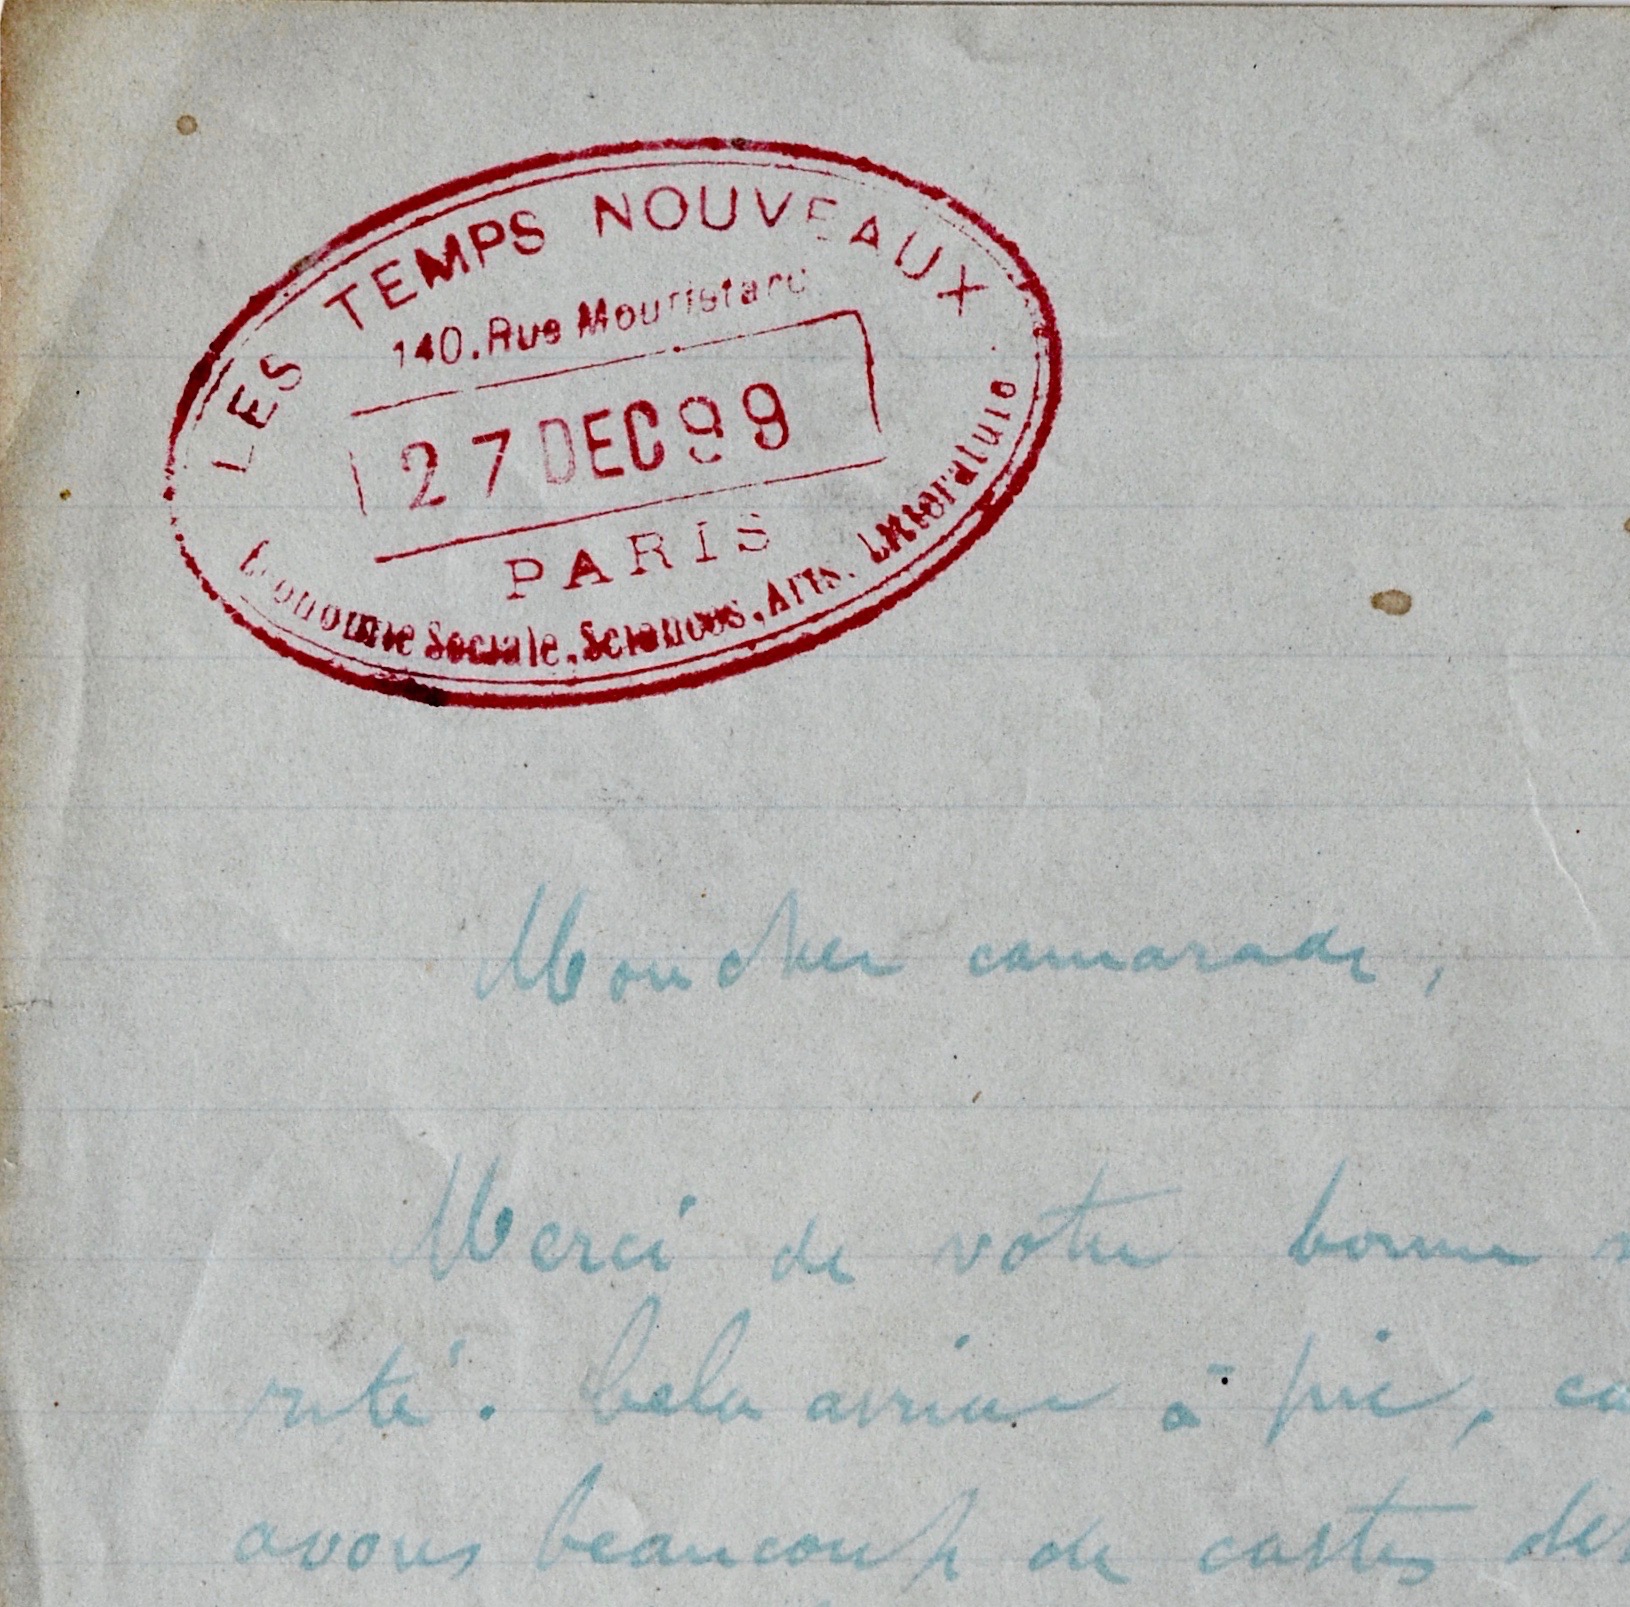 LES TEMPS NOUVEAUX
140. Rue Mouffetard
27 DEC 99
PARIS
Economie Sociale. Sciences. Arts. Littérature.
Mon cher camarade,
Merci de votre bonne
Cela arrive à pic,
avons beaucoup de cartes